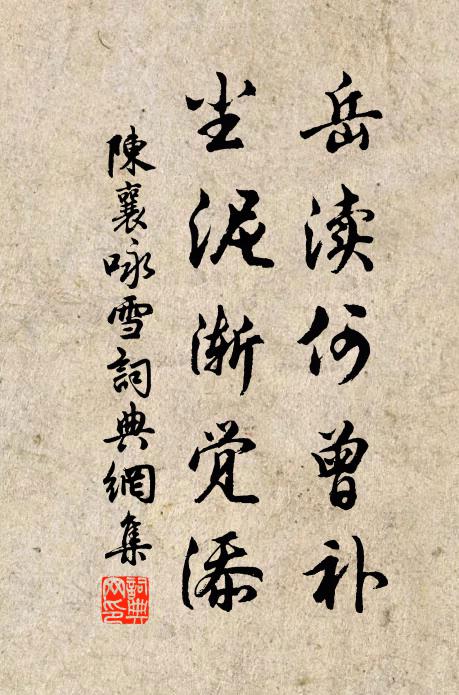 岳渎何曾补
尘泥渐觉添
陳襄咏雪詞典網集
詞典网印